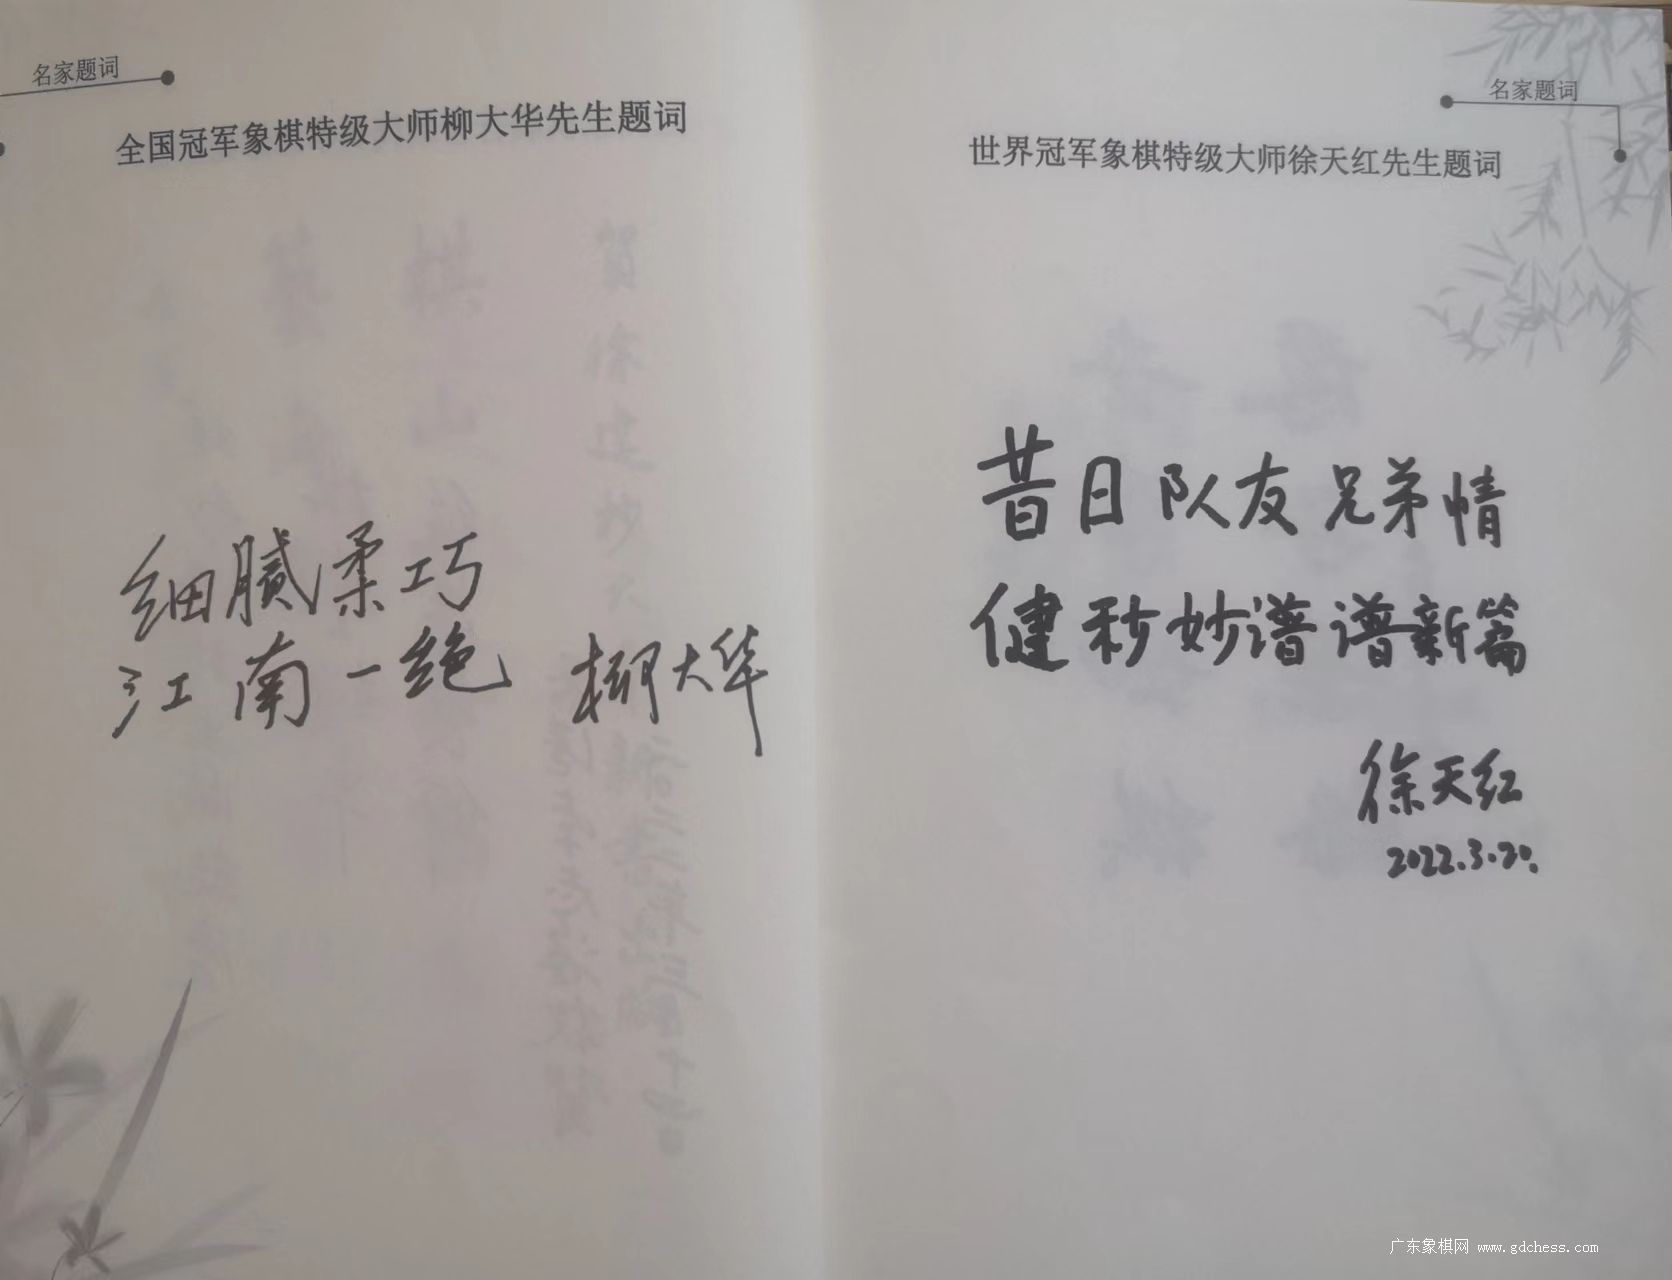 名家题词
全国冠军象棋特级大师柳大华先生题词
细腻柔巧
江南一绝 柳大华
名家题词
世界冠军象棋特级大师徐天红先生题词
昔日队友兄弟情
健秒妙谱谱新篇
徐天红
2022.3.20.
广东象棋网 www.gdchess.com